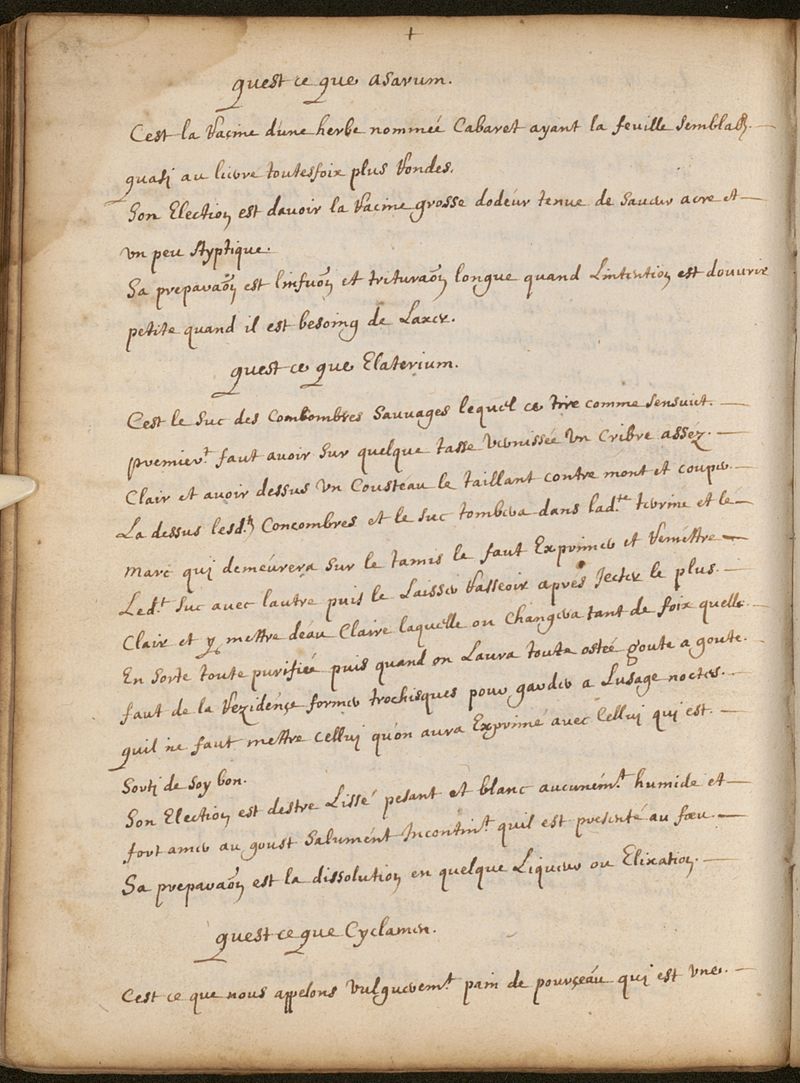 +
quest ce que asarum.
Cest la Racine dune herbe nommeé Cabaret ayant la feuille semblab.
quasi au lierre toutesfoix plus Rondes.
Son Election est davoir la Racine grosse dodeur tenue de saveur acre et
un peu styptique.
Sa preparaõn est linfuõn et trituraõn longue quand Lintention est douvrir
petite quand il est besoing de Laxer.
quest ce que Elaterium.
Cest le suc des Combombres sauvages lequel ce tire comme sensuit.
premiert. faut avoir sur quelque tasse vernissée un Cribre assez.
Clair et avoir dessus un Cousteau le taillant contre mont et couper
La dessus lesd.ts Concombres et le suc tombera dans lad.te terrine et le
marc qui demeúrera sur le tamis le faut Exprimer et Remettre
Led.t suc avec lautre puis le Laisser Rasseoir aprés Jecter le plus
Clair et y mettre deau Claire laquelle on Changera tant de foix quelle
En sorte toute purifiée puis quand on Laura toute ostée goute a goute.
faut de la Rezidençe former trochisques pour garder a Lusage noctes.
quil ne faut mettre celluj quon aura Exprimé avec Celluj qui est.
sorti de soy bon.
Son Election est destre Lissé pesant et blanc aucunem.t humide et
fort amer au goust salument Incontin.t quil est presenté au foeu.
Sa preparaõn est la dissolution en quelque Liqueur ou Elixation.
quest ce que Cyclamen.
Cest ce que nous appelons vulguerem.t pain de pourçeau qui est une.